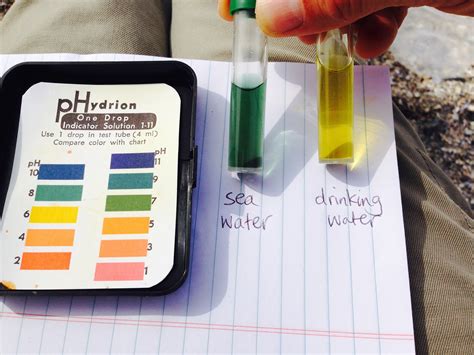 pHydrion
One Drop
Indicator Solution 1-11
Use 1 drop in test tube (4 ml)
Compare color with chart
pH pH
10 11
8 9
6 7
4 5
2 3
1
sea
water
drinking
water